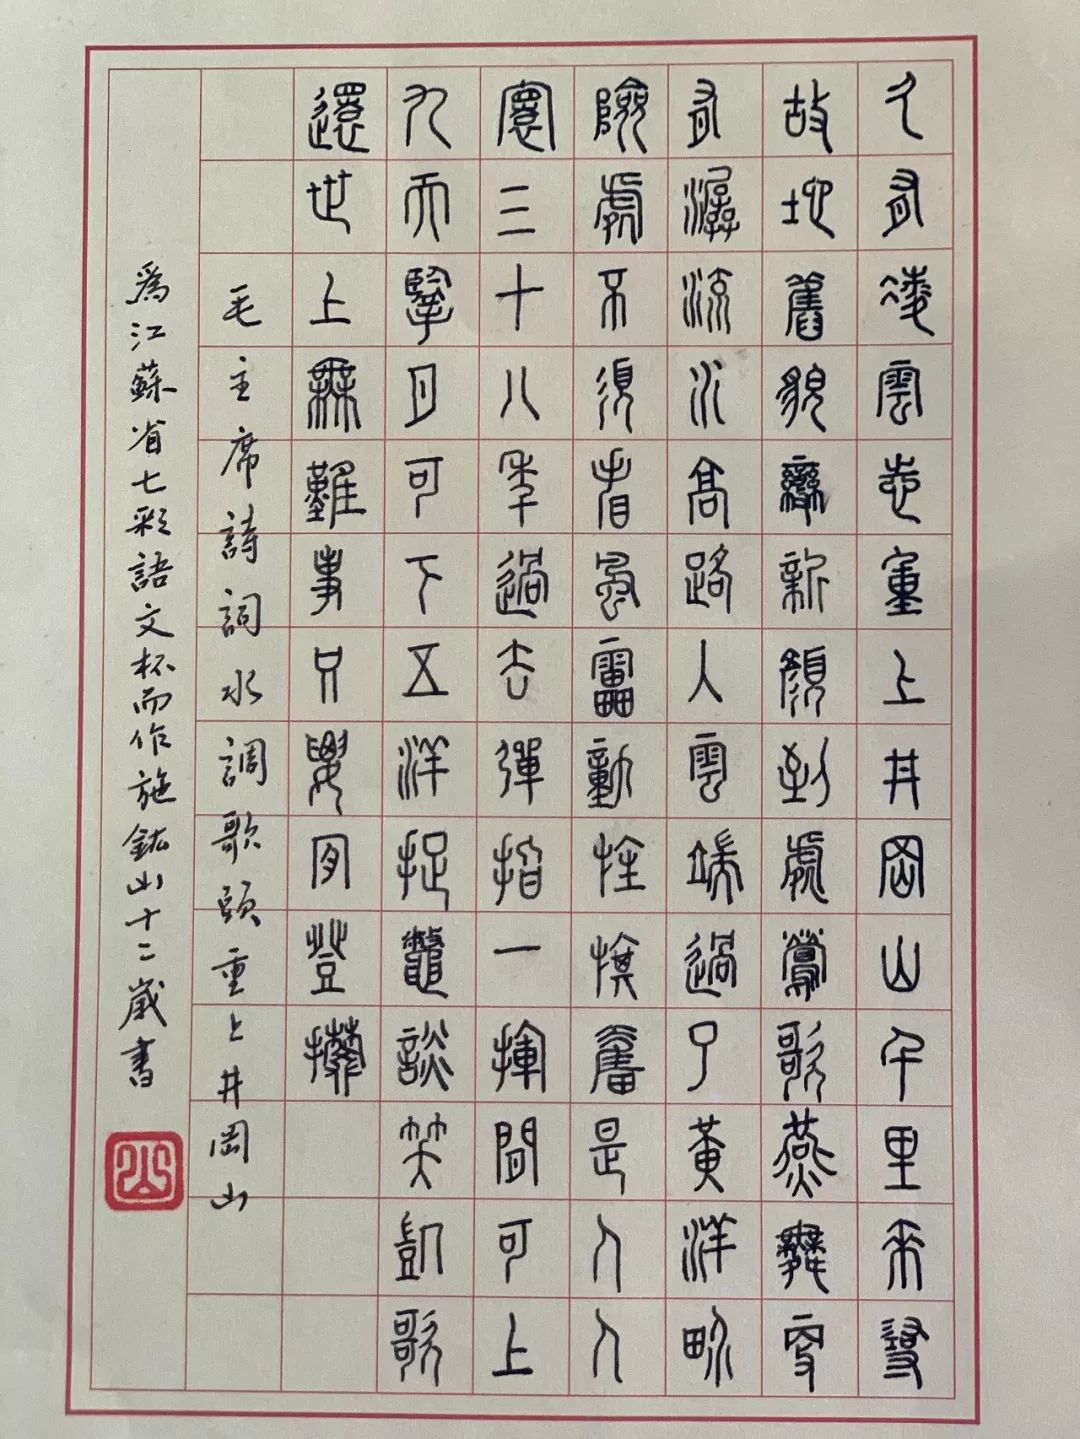 久有凌雲志重上井岡山千里來尋
故地舊貌變新顏到處鶯歌燕舞更
有潺流水高路入雲端過了黃洋界
險處不須看風雷動旌旗奮是人人
寰三十八年過去彈指一揮間可上
九天攬月可下五洋捉鱉談笑凱歌
還世上無難事只要肯登攀
毛主席詩詞水調歌頭重上井岡山
為江蘇省七彩語文杯而作施鈜山十二歲書